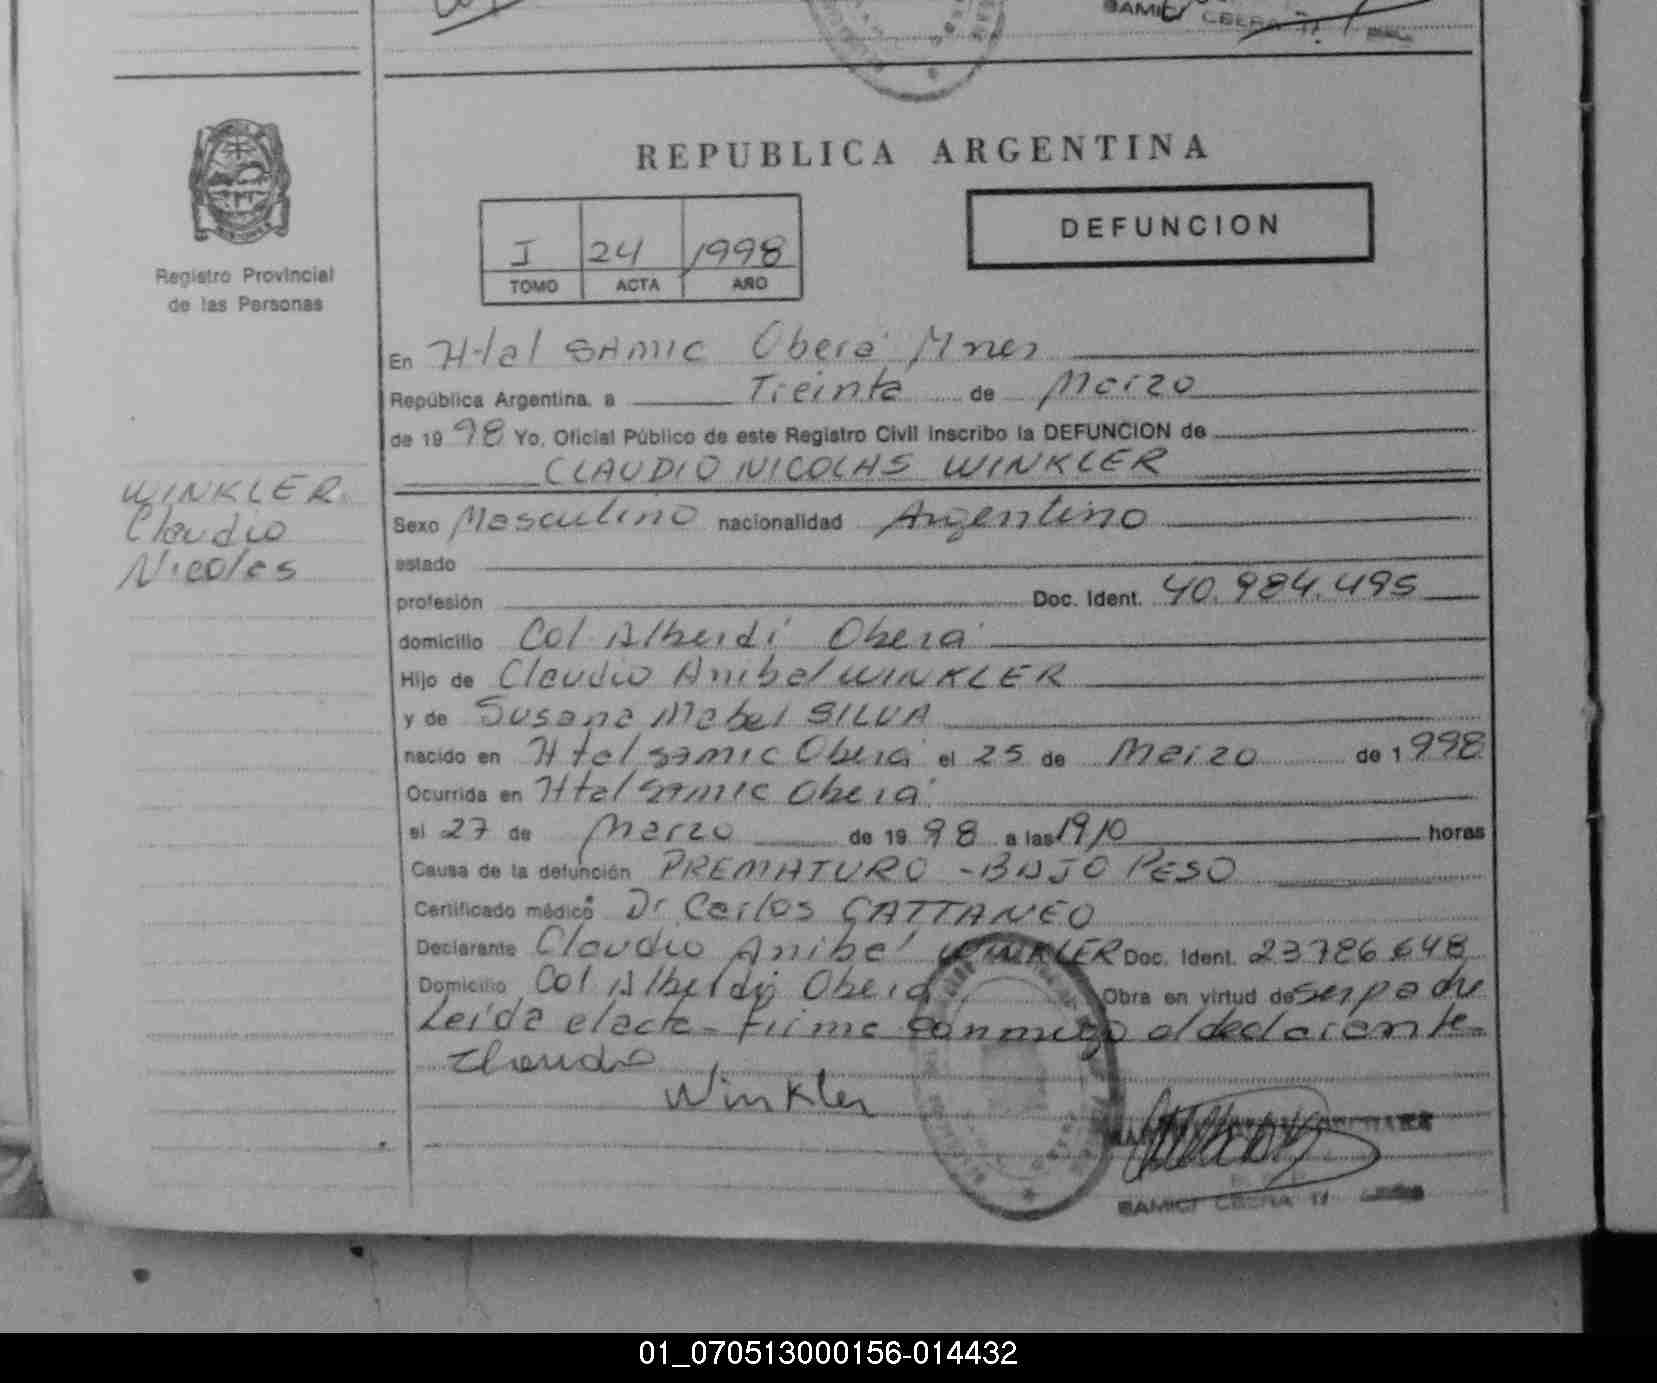 REPUBLICA ARGENTINA
DEFUNCION
I 24 1998
TOMO ACTA AÑO
Registro Provincial
de las Personas
WINKLER
Claudio
Nicolas
En Htal SAMIC Oberá Mnes
República Argentina, a Treinta de Marzo
de 1998 Yo, Oficial Público de este Registro Civil inscribo la DEFUNCION de
CLAUDIO NICOLAS WINKLER
Sexo Masculino nacionalidad Argentino
estado
profesión Doc. Ident. 40.984.495
domicilio Col Alberdi Oberá
Hijo de Claudio Anibal WINKLER
y de Susana Mabel SILVA
nacido en Htal Samic Oberá el 25 de Marzo de 1998
Ocurrida en Htal Samic Oberá
el 27 de Marzo de 1998 a las 1910 horas
Causa de la defunción PREMATURO - BAJO PESO
Certificado médico Dr Carlos CATTANEO
Declarante Claudio Anibal WINKLER Doc. Ident. 23786648
Domicilio Col Alberdi Oberá Obra en virtud de ser padre
Leída el acta firma conmigo el declarante
Claudio
Winkler
01_070513000156-014432